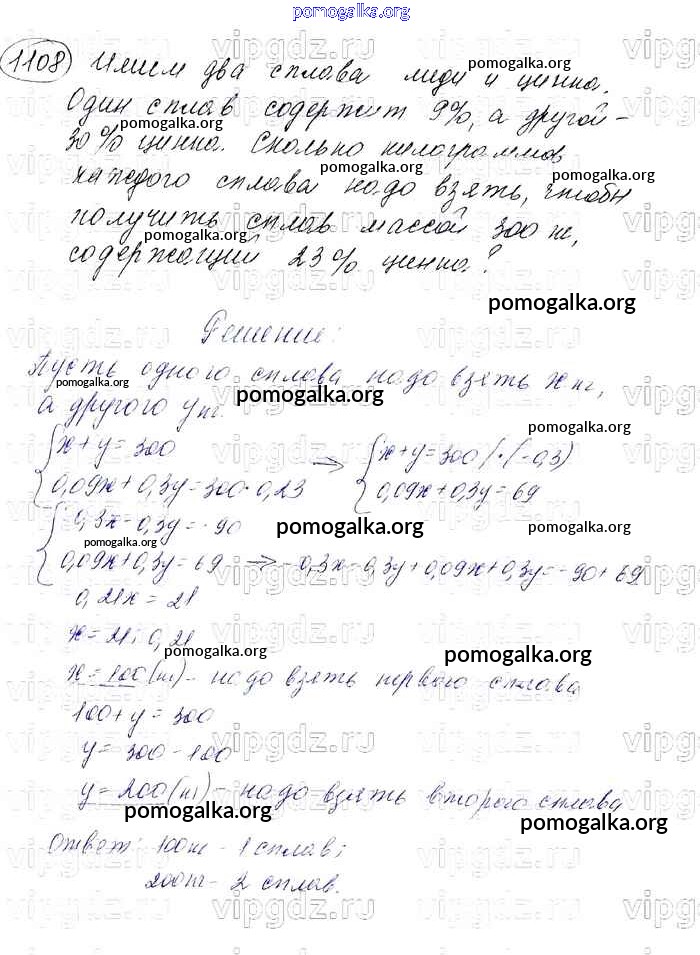 pomogalka.org
1108 Имеем два сплава меди и цинка.
Один сплав содержит 9%, а другой –
30% цинка. Сколько килограммов
каждого сплава надо взять, чтобы
получить сплав массой 300 кг,
содержащий 23% цинка?
Решение:
Пусть одного сплава надо взять x кг,
а другого y кг.
x+y=300 → x+y=300 |·(-0,3)
0,09x+0,3y=300·0,23 0,09x+0,3y=69
-0,3x-0,3y=-90
0,09x+0,3y=69 → -0,3x-0,3y+0,09x+0,3y=-90+69
0,21x=21
x=21:0,21
x=100(кг)- надо взять первого сплава
100+y=300
y=300-100
y=200(кг)- надо взять второго сплава
Ответ: 100кг - 1 сплав;
200кг - 2 сплав.
pomogalka.org
vipgdz.ru